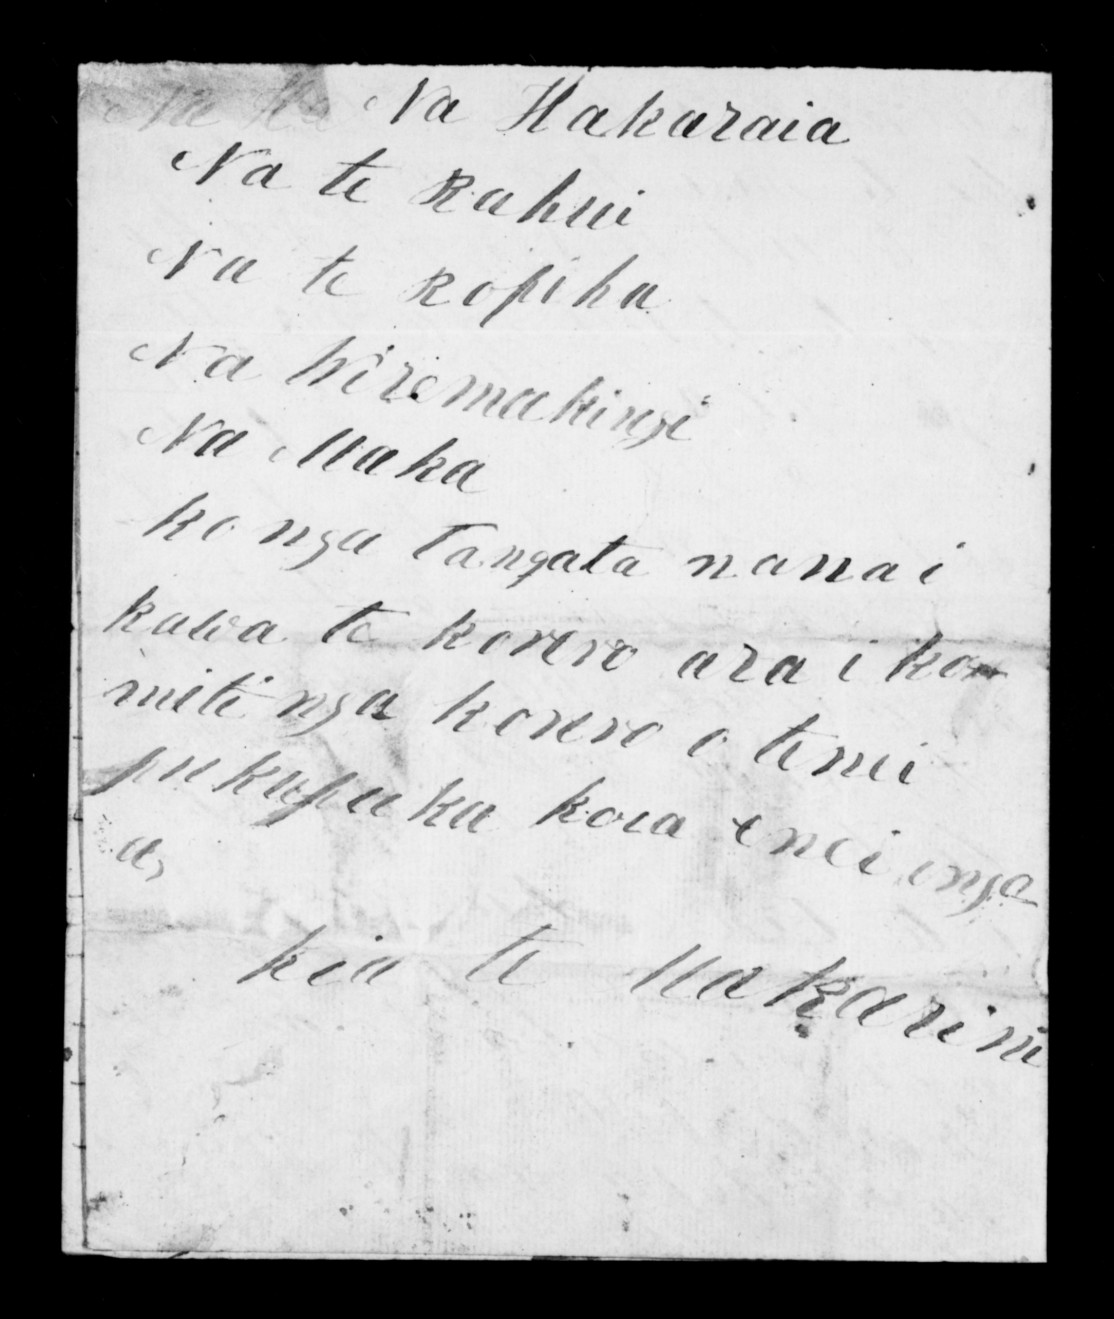 Na Ha Na Hakaraia
Na te Kahui
Na te Kopiha
Na Wiremakingi
Na Maka
ko nga Tangata nana i
kawa te korero ara i ko
miti nga korero o tenei
pukapuka koia enei inga
a,
kia te Makarini